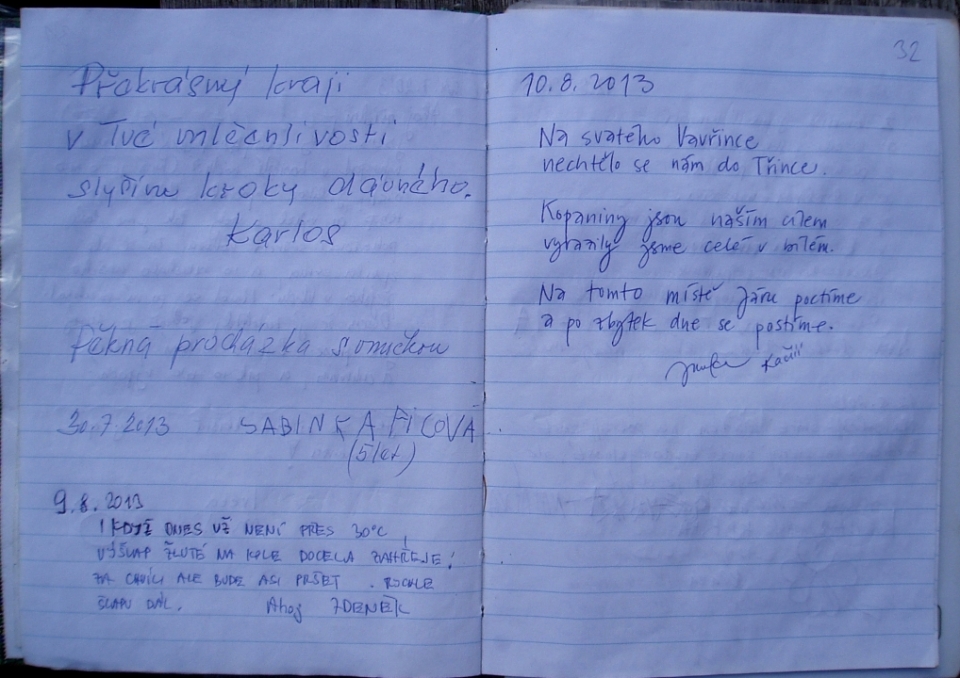 Překrásný kraji
v Tvé mlčenlivosti
slyším kroky dávného.
Karlos
Pěkná procházka s omičkou
30.7.2013 SABINKA FICOVÁ
(5 let)
9.8.2013
I KDYŽ DNES UŽ NENÍ PŘES 30°C
VÝŠLAP ŽLUTÉ NA KOLE DOCELA ZAHŘEJE!
ZA CHVÍLI ALE BUDE ASI PRŠET. RYCHLE
ŠLAPU DÁL. Ahoj ZDENĚK
32
10.8.2013
Na svatého Vavřince
nechtělo se nám do Třince.
Kopaniny jsou naším cílem
vyrazily jsme celé v bílém.
Na tomto místě Járu poctíme
a po zbytek dne se postíme.